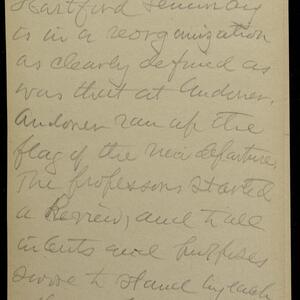 Hartford Seminary
is in a reorganization
as clearly defined as
was that at Andover.
Andover ran up the
flag of the new departure.
The professors started
a Review, and to all
intents and purposes
swore to stand by each